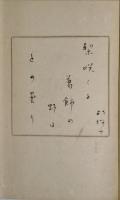 梨咲くと
葛飾の
野は
との曇り